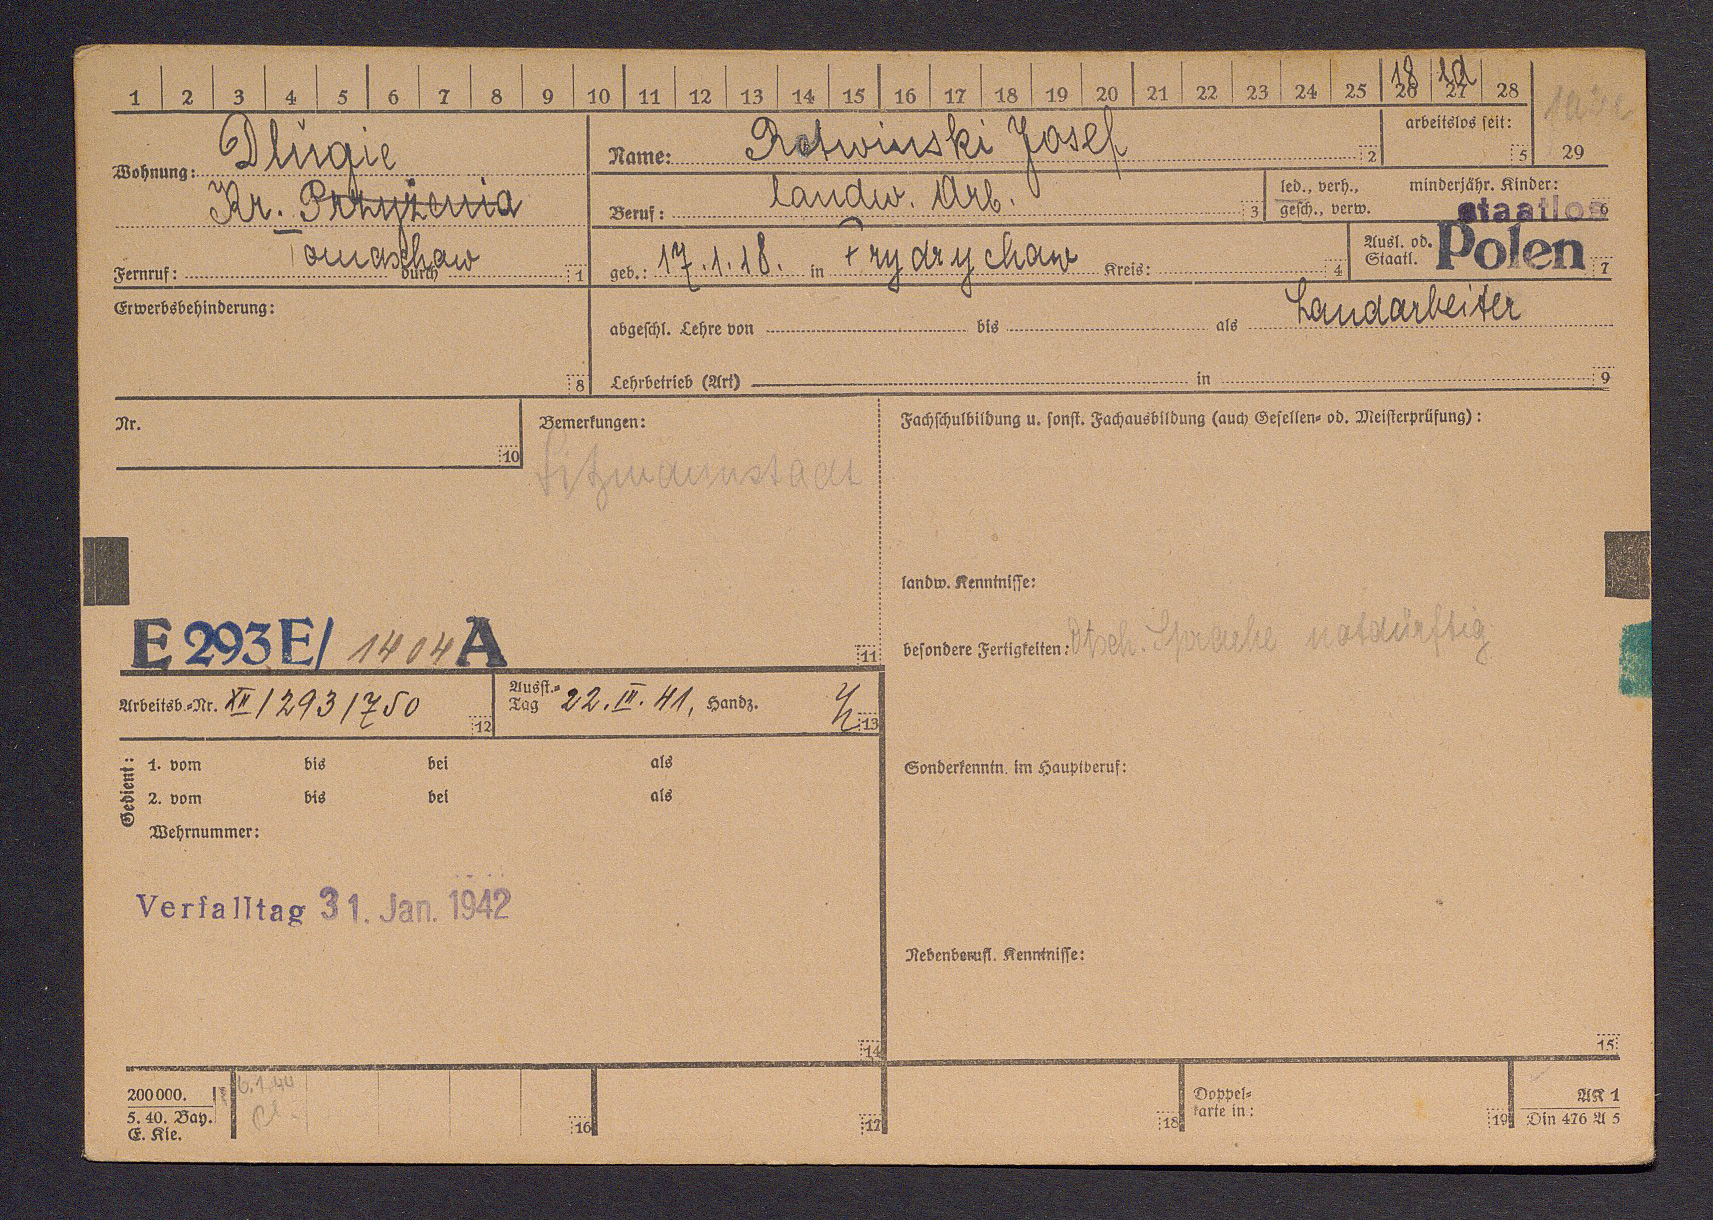 1 2 3 4 5 6 7 8 9 10 11 12 13 14 15 16 17 18 19 20 21 22 23 24 25 26 27 28
18 1d
Wohnung: Dlugie
Kr. Przyżenia
Tomaschow
Fernruf: durch 1
Name: Rotwinski Josef 2
arbeitslos seit: 5
29
Beruf: landw. Arb. 3
led., verh., gesch., verw. minderjähr. Kinder: 6
staatlos
geb.: 17.1.18. in Frydrychow Kreis: 4
Ausl. od. Staatl. Polen 7
Erwerbsbehinderung: 8
abgeschl. Lehre von bis als Landarbeiter
Lehrbetrieb (Art) in 9
Nr. 10
Bemerkungen:
Litzmannstadt
Fachschulbildung u. sonst. Fachausbildung (auch Gesellen- od. Meisterprüfung):
landw. Kenntnisse:
besondere Fertigkeiten: Dtsch. Sprache notdürftig
E 293 E/ 1404 A
11
Arbeitsb.-Nr. XII/293/750 12
Ausst.-Tag 22.III.41, Handz. 13
Gedient:
1. vom bis bei als
2. vom bis bei als
Wehrnummer:
Sonderkenntn. im Hauptberuf:
Verfalltag 31. Jan. 1942
Nebenberufl. Kenntnisse:
14 15
200000.
5. 40. Bay.
E. Kie.
6.1.44
16 17 18
Doppel-
karte in: 19
AK 1
Din 476 A 5